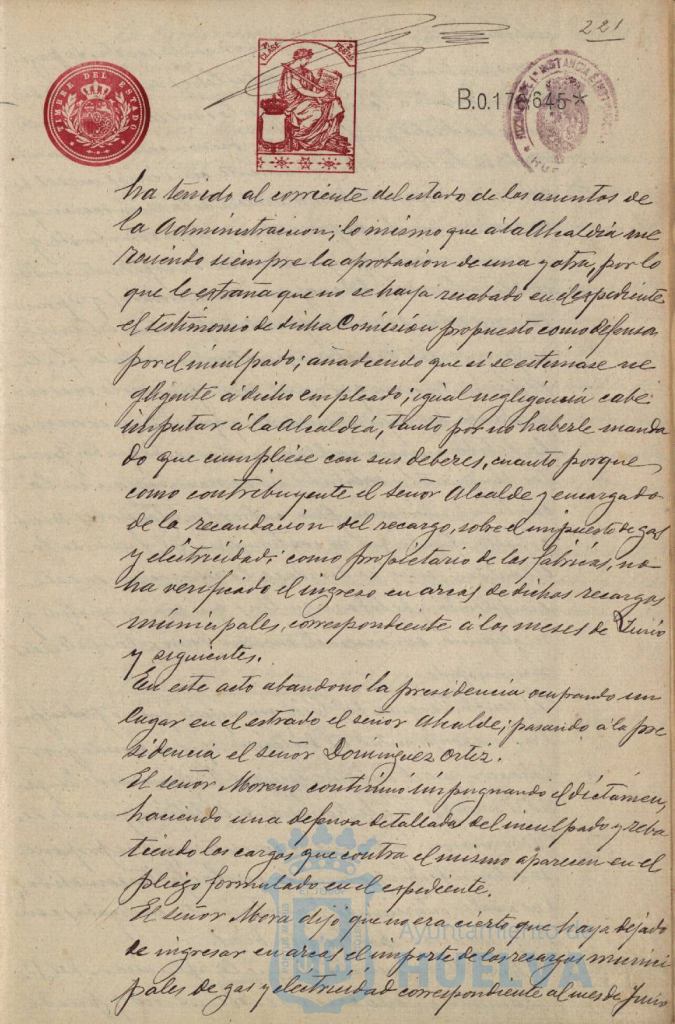 221
TIMBRE DEL ESTADO
CLASE
PESETAS
B.0.170.645*
INSTANCIA
ha tenido al corriente del estado de los asuntos de
la Administracion; lo mismo que á la Alcaldía me
reciendo siempre la aprobacion de una y otra, por lo
que le estraña que no se haya recabado en el expediente
el testimonio de dicha Comisión propuesto como defensa
por el inculpado; añadiendo que si se estimase ne
gligente á dicho empleado; igual negligencia cabe
imputar á la Alcaldiá, tanto por no haberle manda
do que cumpliése con sus deberes, cuanto porque
como contribuyente el señor Alcalde y encargado
de la recaudación del recargo, sobre el impuesto de gas
y eléctricidad; como propietario de las fabricas, no
ha verificado el ingreso en arcas de dichos recargos
municipales, correspondiente á los meses de Junio
y siguientes.
En este acto abandonó la presidencia ocupando un
lugar en el estrado el señor Alcalde; pasando á la pre
sidencia el señor Dominguez Ortiz.
El señor Moreno continuó impugnando el dictámen,
haciendo una defensa detallada del inculpado y reba
tiendo los cargos que contra el mismo aparecen en el
pliego formulado en el expediente.
El señor Mora dijó que no era cierto que haya dejado
de ingresar en arcas el importe de los recargos munici
pales de gas y eléctricidad correspondiente al mes de Junio
Ayuntamiento de
HUELVA